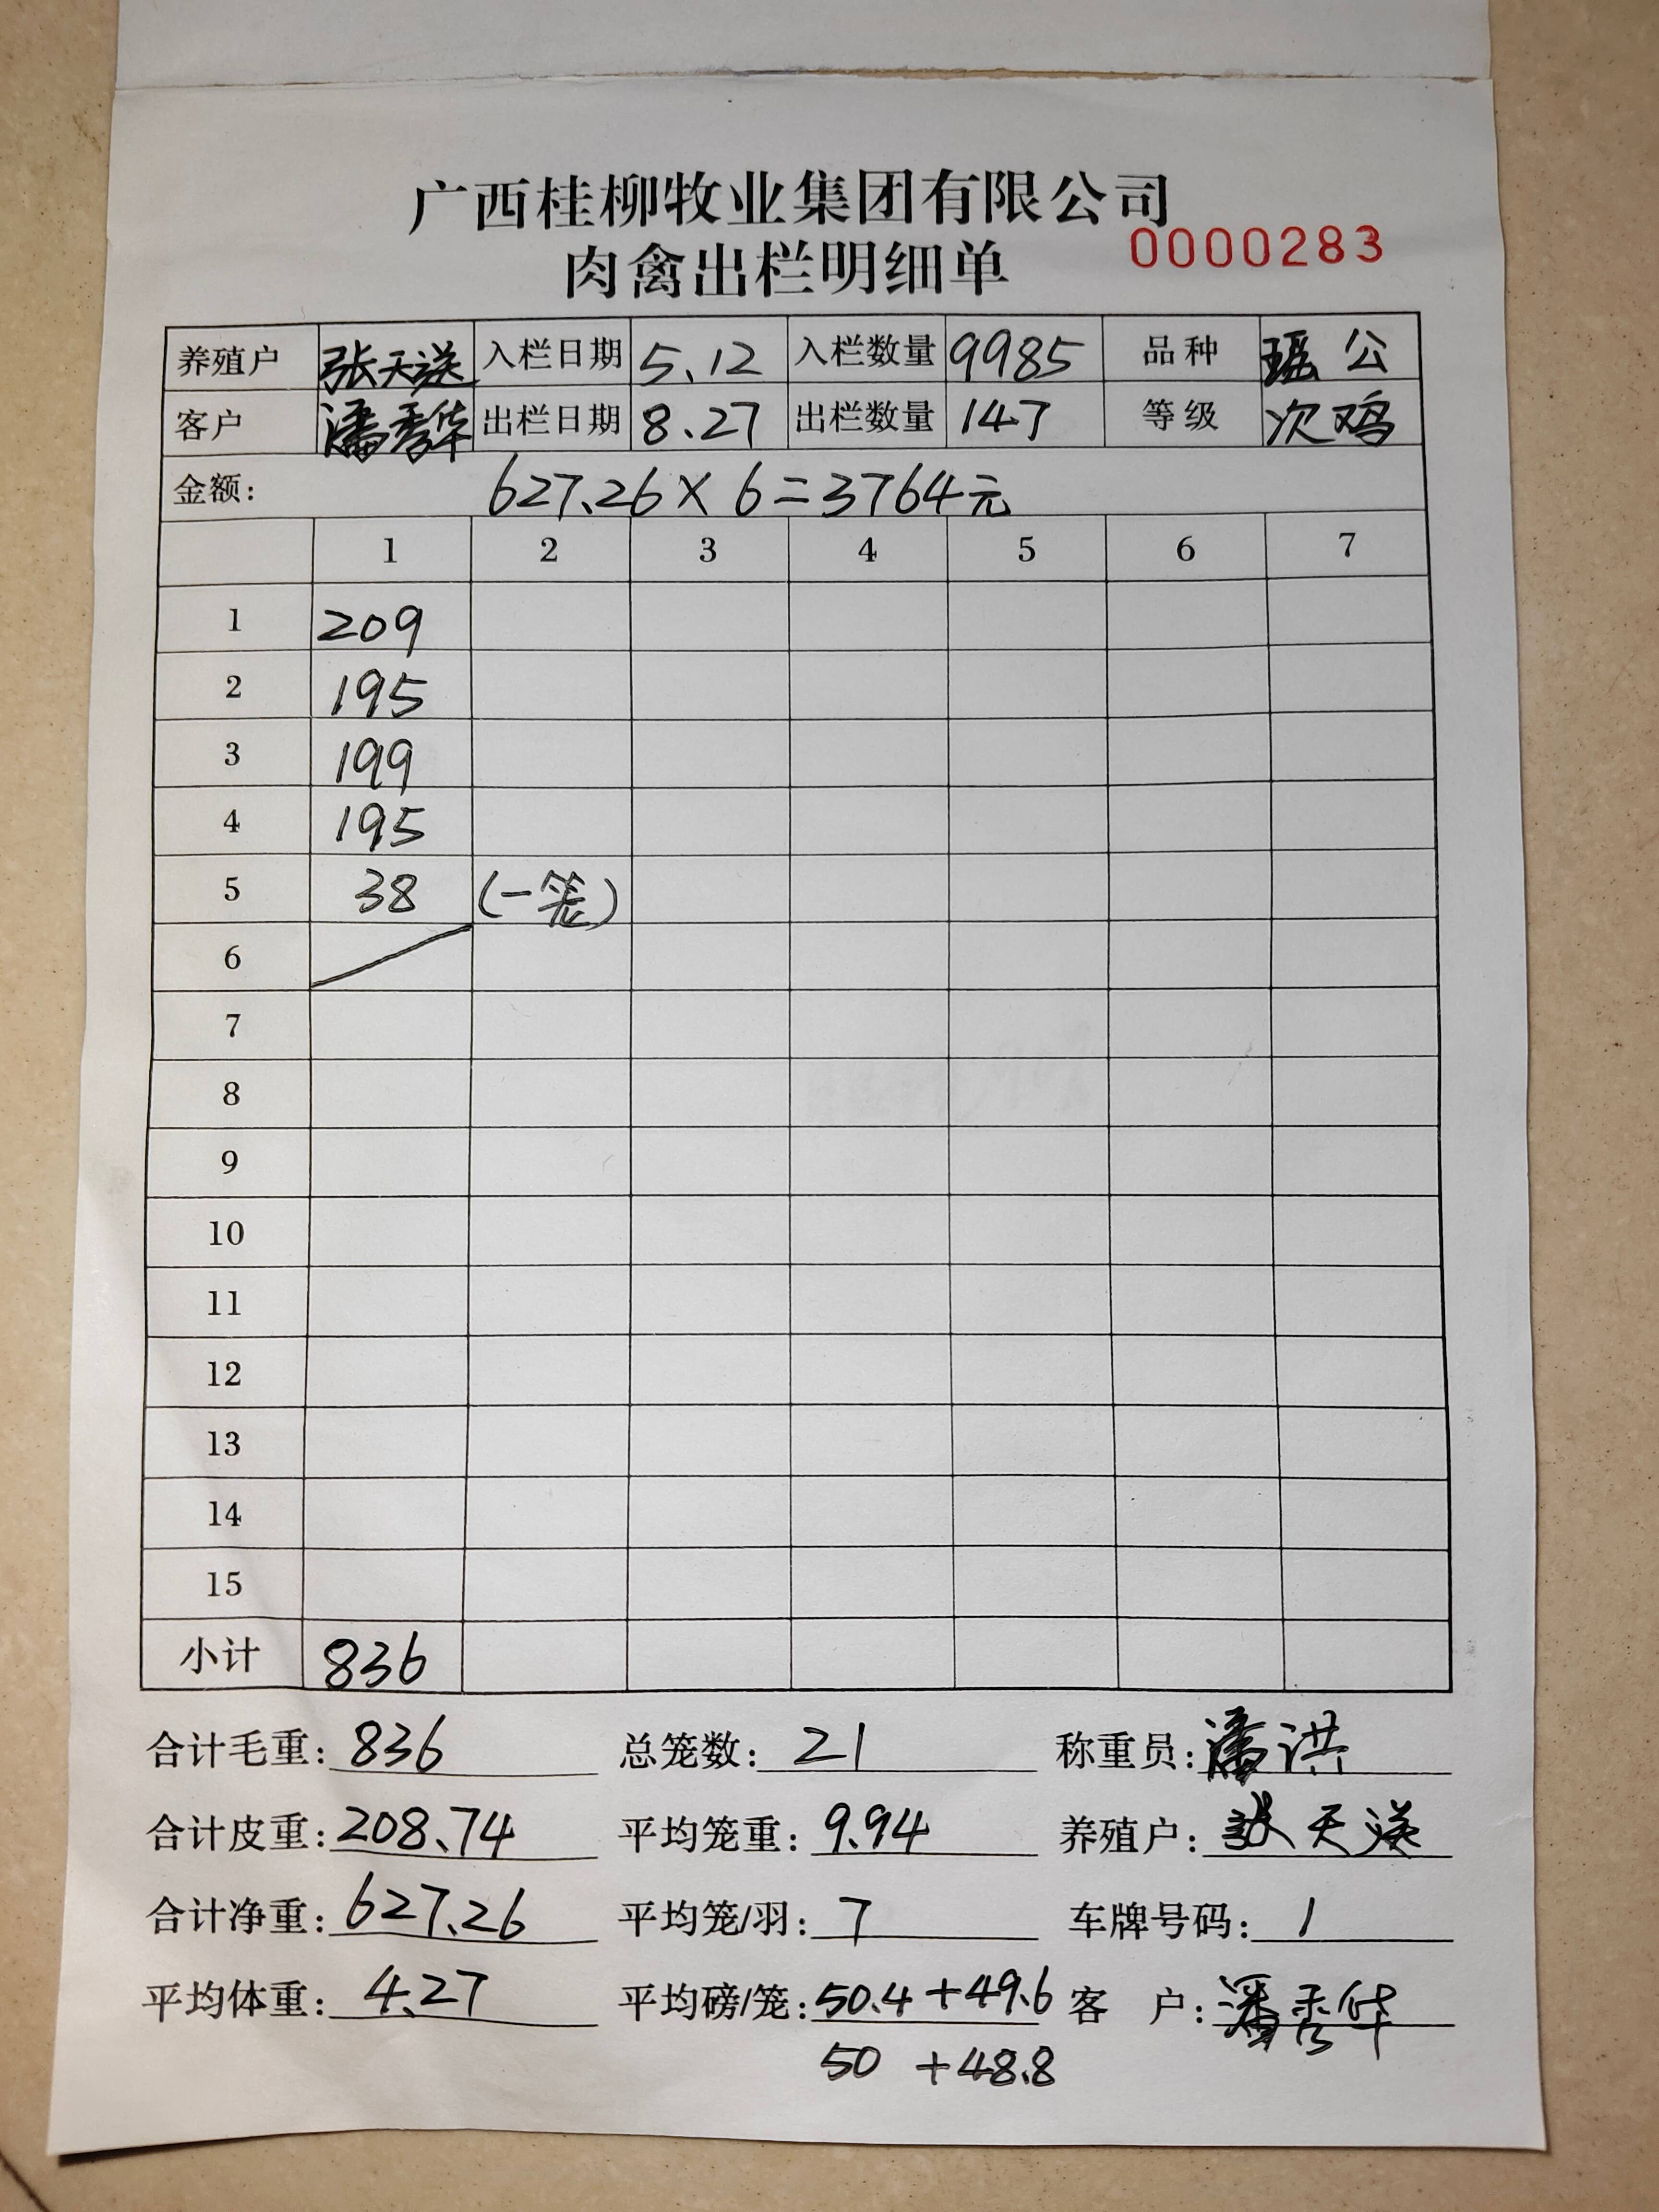 广西桂柳牧业集团有限公司
肉禽出栏明细单 0000283
养殖户 张天送 入栏日期 5.12 入栏数量 9985 品种 瑶公
客户 潘秀华 出栏日期 8.27 出栏数量 147 等级 次鸡
金额: 627.26×6=3764元
1 2 3 4 5 6 7
1 209
2 195
3 199
4 195
5 38 (一笼)
6
7
8
9
10
11
12
13
14
15
小计 836
合计毛重: 836 总笼数: 21 称重员: 潘洪
合计皮重: 208.74 平均笼重: 9.94 养殖户: 张天送
合计净重: 627.26 平均笼/羽: 7 车牌号码: 1
平均体重: 4.27 平均磅/笼: 50.4+49.6 客户: 潘秀华
50 +48.8